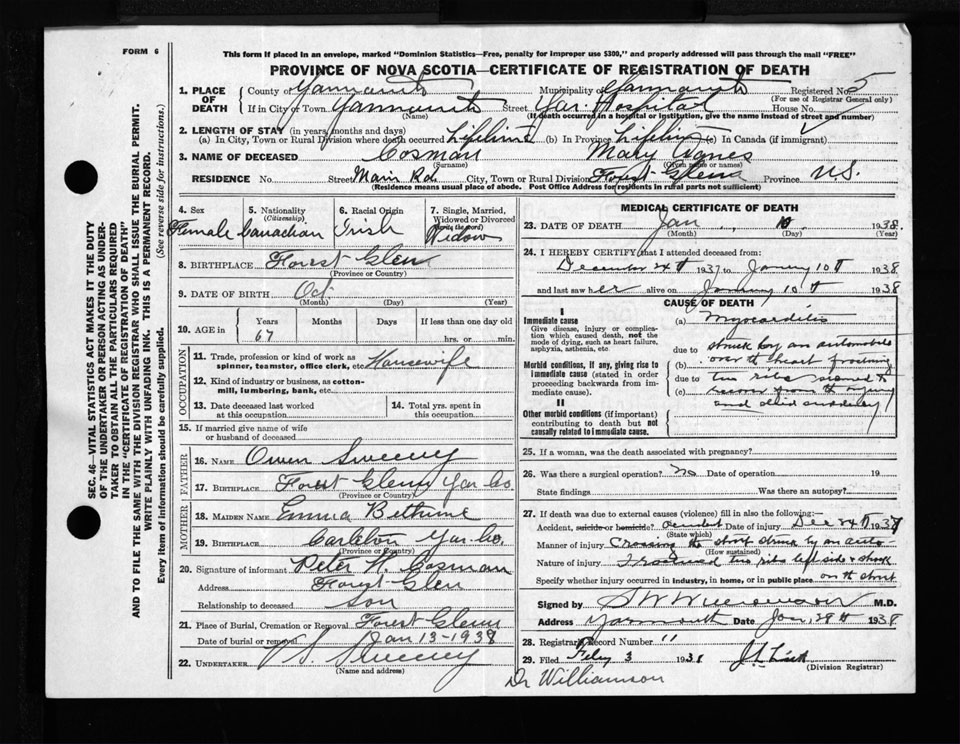 FORM 6
This form if placed in an envelope, marked "Dominion Statistics—Free, penalty for improper use $300," and properly addressed will pass through the mail "FREE"
PROVINCE OF NOVA SCOTIA—CERTIFICATE OF REGISTRATION OF DEATH
1. PLACE OF DEATH
County of Yarmouth Municipality of Yarmouth Registered No. 5
(For use of Registrar General only)
If in City or Town Yarmouth Street Yar. Hospital House No.
(Name) (If death occurred in a hospital or institution, give the name instead of street and number)
2. LENGTH OF STAY (in years, months and days)
(a) In City, Town or Rural Division where death occurred Lifetime (b) In Province Lifetime (c) In Canada (if immigrant)
3. NAME OF DECEASED Cosman Mary Agnes
(Surname) (Given name or names)
RESIDENCE No. Street Main Rd. City, Town or Rural Division Forest Glenn Province N.S.
(Residence means usual place of abode. Post Office Address for residents in rural parts not sufficient)
4. Sex Female
5. Nationality (Citizenship) Canadian
6. Racial Origin Irish
7. Single, Married, Widowed or Divorced (write the word) Widow
8. BIRTHPLACE Forest Glen
(Province or Country)
9. DATE OF BIRTH Oct
(Month) (Day) (Year)
10. AGE in Years Months Days If less than one day
67 hrs. or min.
OCCUPATION
11. Trade, profession or kind of work as spinner, teamster, office clerk, etc. Housewife
12. Kind of industry or business, as cotton-mill, lumbering, bank, etc.
13. Date deceased last worked at this occupation
14. Total yrs. spent in this occupation
15. If married give name of wife or husband of deceased
FATHER
16. NAME Owen Sweeney
17. BIRTHPLACE Forest Glenn Yar Co
(Province or Country)
MOTHER
18. MAIDEN NAME Emma Bethune
19. BIRTHPLACE Carleton Yar. Co.
(Province or Country)
20. Signature of informant Peter W. Cosman
Address Forest Glen
Relationship to deceased Son
21. Place of Burial, Cremation or Removal Forest Glenn
Date of burial or removal Jan 13-1938
22. UNDERTAKER V. S. Sweeney
(Name and address)
MEDICAL CERTIFICATE OF DEATH
23. DATE OF DEATH Jan 10 1938
(Month) (Day) (Year)
24. I HEREBY CERTIFY that I attended deceased from
December 24th 1937 to January 10th 1938
and last saw her alive on January 10th 1938
CAUSE OF DEATH
I
Immediate cause
Give disease, injury or complication which caused death, not the mode of dying, such as heart failure, asphyxia, asthenia, etc.
(a) Myocarditis
due to struck by an automobile
Morbid conditions, if any, giving rise to immediate cause (stated in order proceeding backwards from immediate cause).
(b) over the heart fracturing
due to two ribs seemed to
(c) recover from the injury
and died suddenly
II
Other morbid conditions (if important) contributing to death but not causally related to immediate cause.
25. If a woman, was the death associated with pregnancy?
26. Was there a surgical operation? no Date of operation 19
State findings Was there an autopsy?
27. If death was due to external causes (violence) fill in also the following:
Accident, suicide or homicide? accident Date of injury Dec 24th 1937
(State which)
Manner of injury Crossing the street struck by an auto-
(How sustained)
Nature of injury Fractured two ribs left side & shock
Specify whether injury occurred in industry, in home, or in public place on the street
Signed by S W Williamson M.D.
Address Yarmouth Date Jan, 28th 1938
28. Registrar's Record Number 11
29. Filed Feby 3 1938
(Division Registrar)
Dr Williamson
SEC. 46—VITAL STATISTICS ACT MAKES IT THE DUTY OF THE UNDERTAKER OR PERSON ACTING AS UNDERTAKER TO OBTAIN ALL THE PARTICULARS REQUIRED IN THE "CERTIFICATE OF REGISTRATION OF DEATH"
AND TO FILE THE SAME WITH THE DIVISION REGISTRAR WHO SHALL ISSUE THE BURIAL PERMIT.
WRITE PLAINLY WITH UNFADING INK. THIS IS A PERMANENT RECORD.
Every item of information should be carefully supplied. (See reverse side for instructions.)